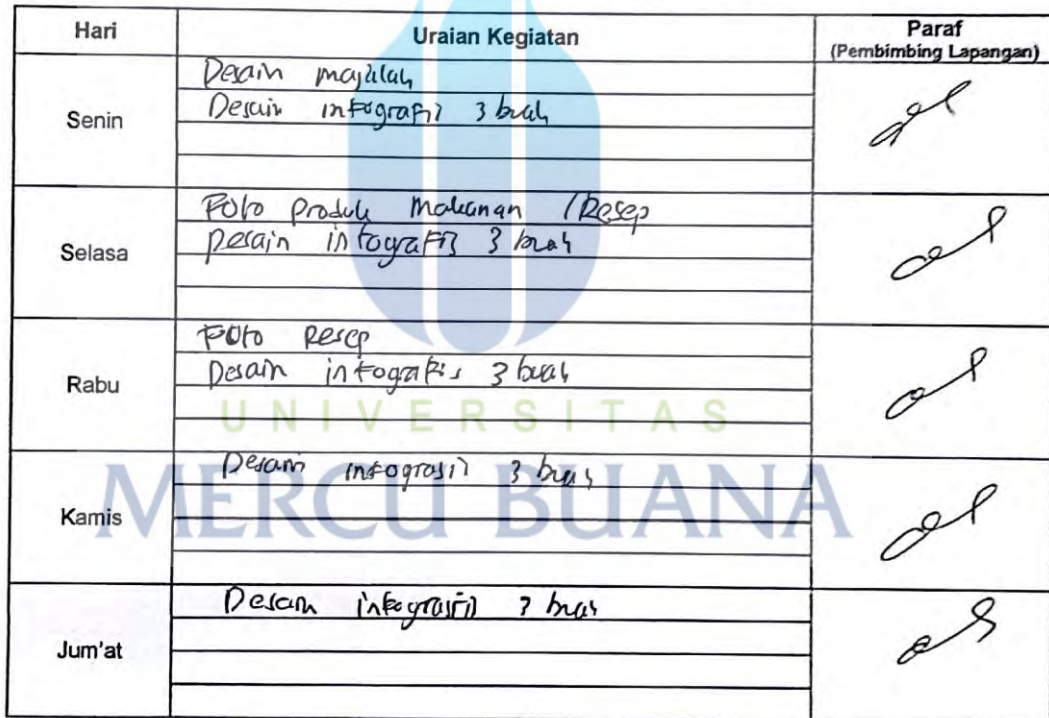 Hari Uraian Kegiatan Paraf
(Pembimbing Lapangan)
Senin
Desain majalah
Desain infografis 3 buah
Selasa
Foto produk makanan / Resep
Desain infografis 3 buah
Rabu
Foto Resep
Desain infografis 3 buah
UNIVERSITAS
MERCU BUANA
Kamis
Desain infografis 3 buah
Jum'at
Desain infografis 3 buah